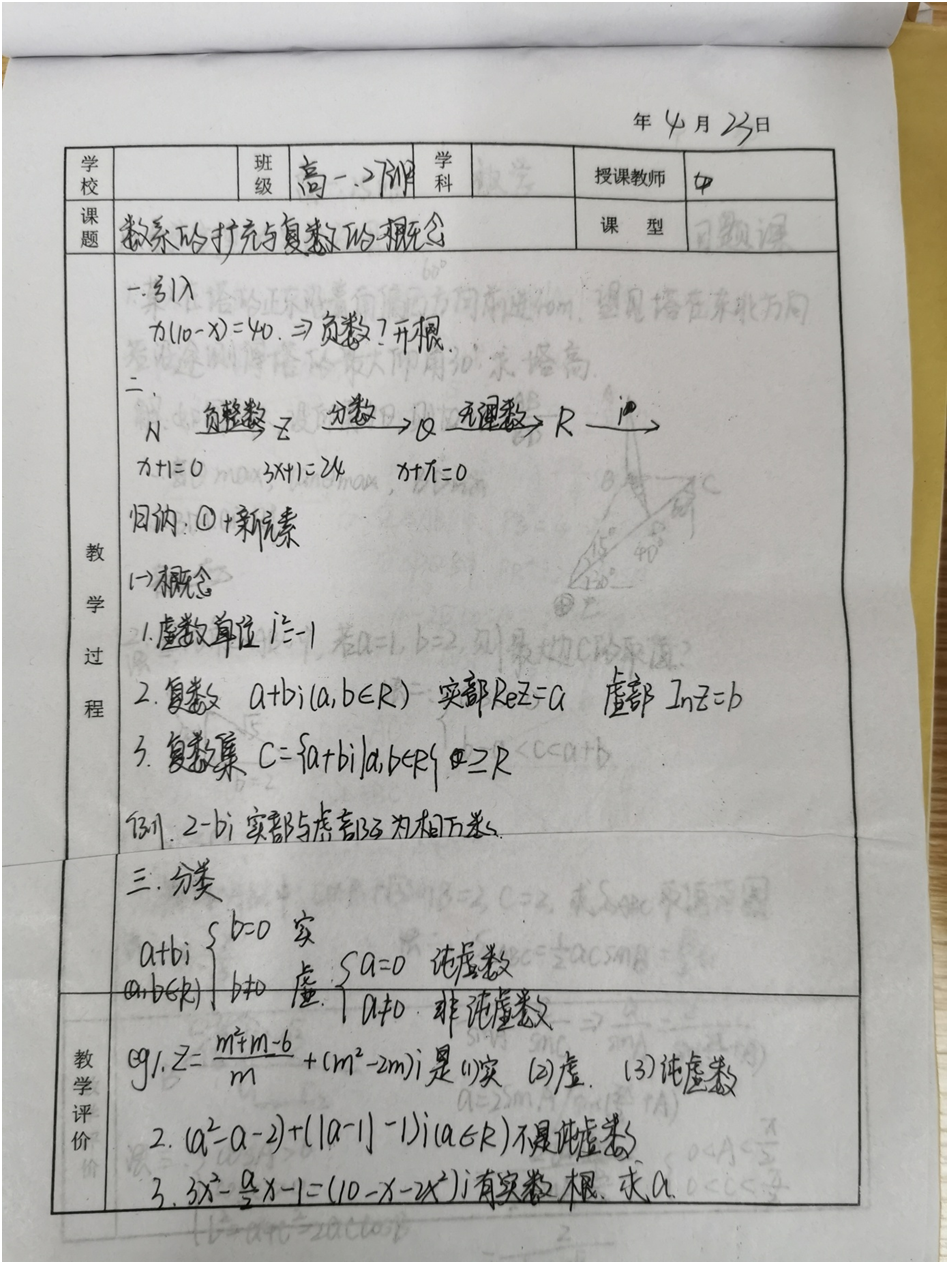 年 4 月 23 日
学校 班级 高一.2 学科 授课教师
课题 数系的扩充与复数的概念 课 型
教学过程
一.引入
x(10-x)=40. ⇒ 负数?开根.
二、
N 负整数→ Z 分数→ Q 无理数→ R i→
x+1=0 3x+1=24 x+π=0
归纳:①+新元素
(一)概念
1.虚数单位 i²=-1
2.复数 a+bi(a,b∈R) 实部ReZ=a 虚部 InZ=b
3.复数集 C={a+bi|a,b∈R} ⊇R
例.2-bi 实部与虚部互为相反数.
三.分类
a+bi (a,b∈R) { b=0 实
b≠0 虚. { a=0 纯虚数
a≠0. 非纯虚数
教学评价
eg1.Z=\frac{m²+m-6}{m}+(m²-2m)i 是(1)实 (2)虚. (3)纯虚数
2.(a²-a-2)+(|a-1|-1)i(a∈R)不是纯虚数
3.3x²-\frac{a}{2}x-1=(10-x-2x²)i有实数根.求a.